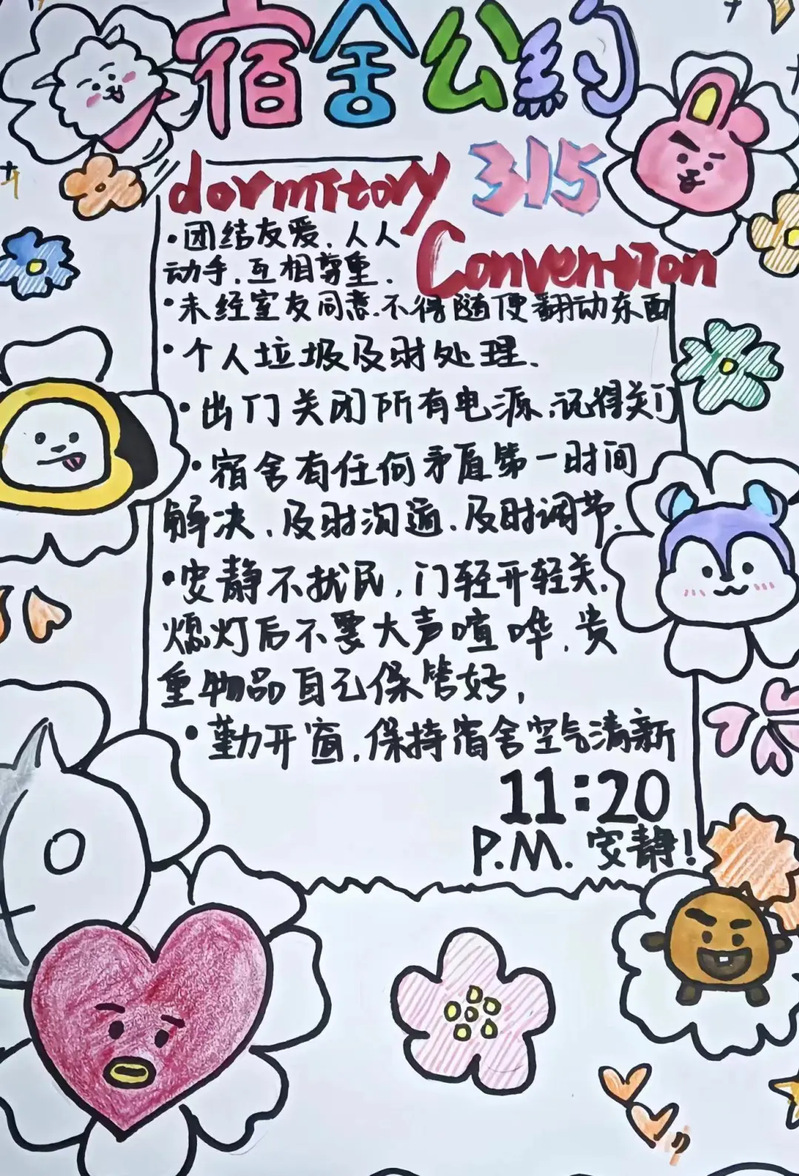 宿舍公约
dormitory 315
Convention
•团结友爱、人人
动手、互相尊重.
•未经室友同意.不得随便翻动东西
•个人垃圾及时处理.
•出门关闭所有电源、记得关门
•宿舍有任何矛盾第一时间
解决、及时沟通、及时调节.
•安静不扰民,门轻开轻关.
熄灯后不要大声喧哗.贵
重物品自己保管好,
•勤开窗,保持宿舍空气清新
11:20
P.M.安静!